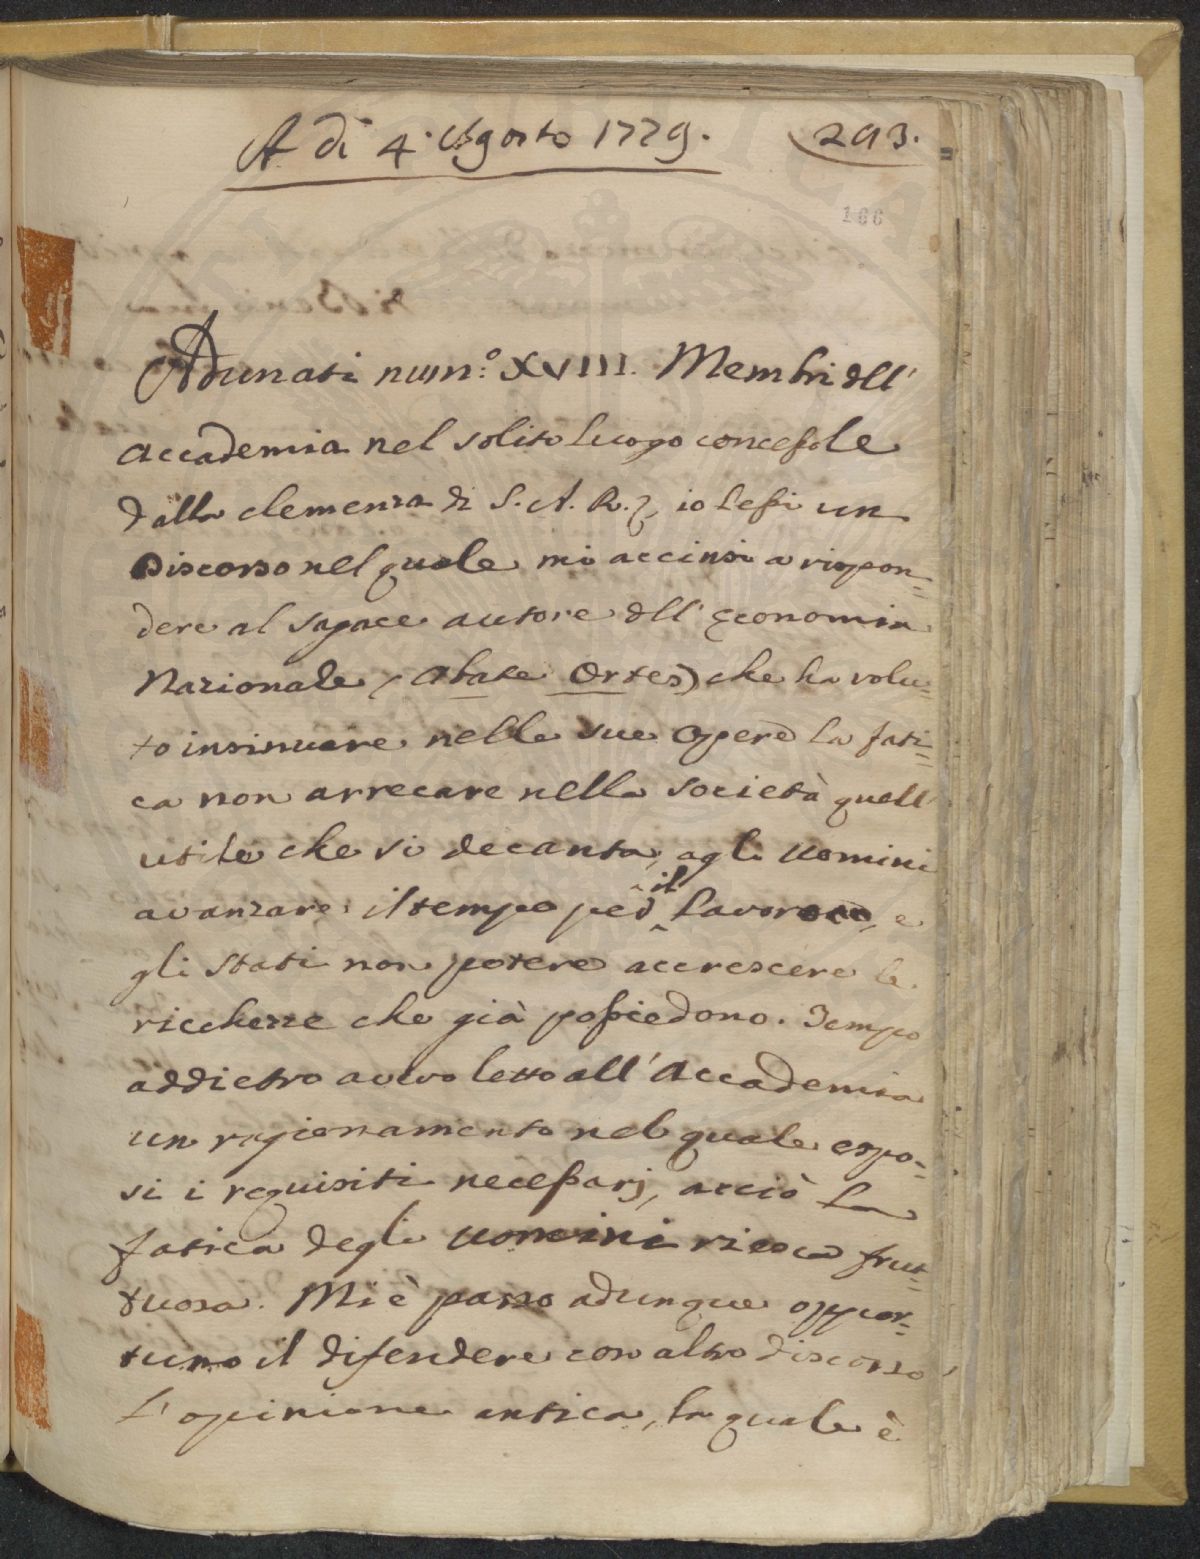 A dì 4. Agosto 1779.
293.
166
Adunati num:º XVIII. Membri dell'
accademia nel solito luogo concessole
dalla clemenza di S. A. R., io lessi un
Discorso nel quale mi accinsi a rispon=
dere al sagace autore dell' Economia
Nazionale (Abate Ortes) che ha volu=
to insinuare nelle sue Opere la fati=
ca non arrecare nella società quell'
utile che si decanta, agli uomini
avanzare il tempo per il Lavoro, e
gli stati non potere accrescere le
ricchezze che già possiedono. Tempo
addietro avevo letto all'Accademia
un ragionamento nel quale espo=
si i requisiti necessarj, acciò la
fatica degli uomini riesca frut=
tuosa. Mi è parso adunque oppor=
tuno il difendere con altro discorso
l'opinione antica, la quale è